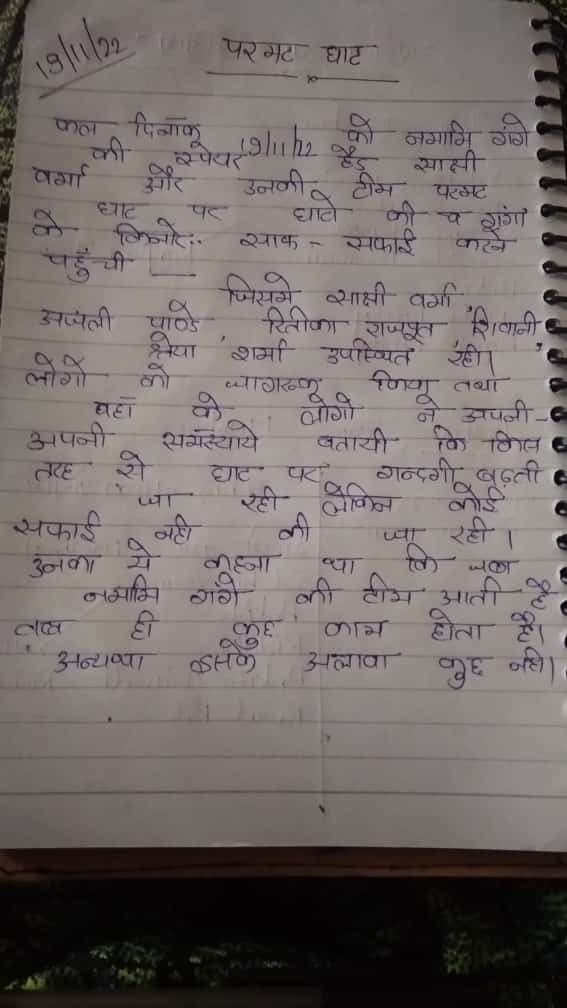 19/11/22
परमट घाट
कल दिनांक 19/11/22 को नमामि गंगे
की स्पेयर हेड साक्षी
वर्मा और उनकी टीम परमट
घाट पर घाटो की व गंगा
के किनारे साफ - सफाई करने
पहुँची
जिसमे साक्षी वर्मा,
अंजली पाण्डे, रितीका राजपूत, शिवानी,
श्रेया शर्मा उपस्थित रही।
लोगों को जागरूक किया तथा
वहाँ के लोगो ने अपनी -
अपनी समस्याये बतायी कि किस
तरह से घाट पर गन्दगी बढ़ती
जा रही लेकिन कोई
सफाई नही की जा रही।
उनका ये कहना था कि जब
नमामि गंगे की टीम आती है
तब ही कुछ काम होता है।
अन्यथा इसके अलावा कुछ नही।